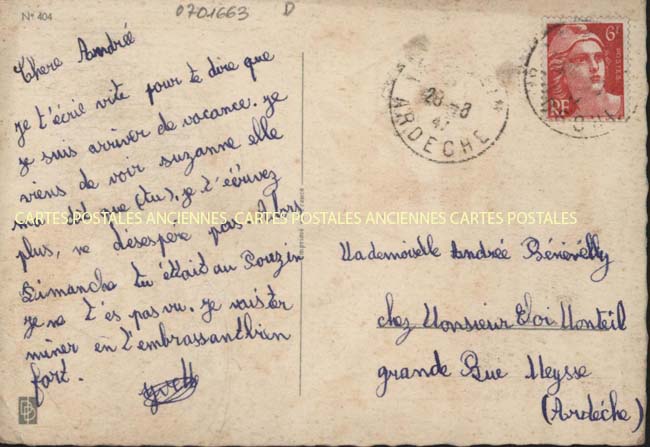 N° 404
0701663 D
Chere Andrée
je t'écrie vite pour te dire que
je suis arriver de vacance. je
viens de voir suzanne elle
ma dit que (tu). je t'écrivez
plus, ne désespère pas. Alors
Dimanche tu était au Pouzin
je ne t'es pas vu. je vais ter
miner en t'embrassant bien
fort.
Yvette
CARTES POSTALES ANCIENNES CARTES POSTALES ANCIENNES CARTES POSTALES
Imprimé en France
28-8
47
ARDECHE
6F
POSTES
RF
Mademoiselle Andrée
chez Monsieur Eloi Monteil
grande Rue Meysse
(Ardéche)